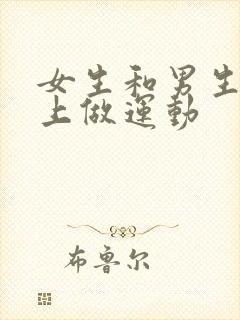 女生和男生
上做運動
布鲁尔